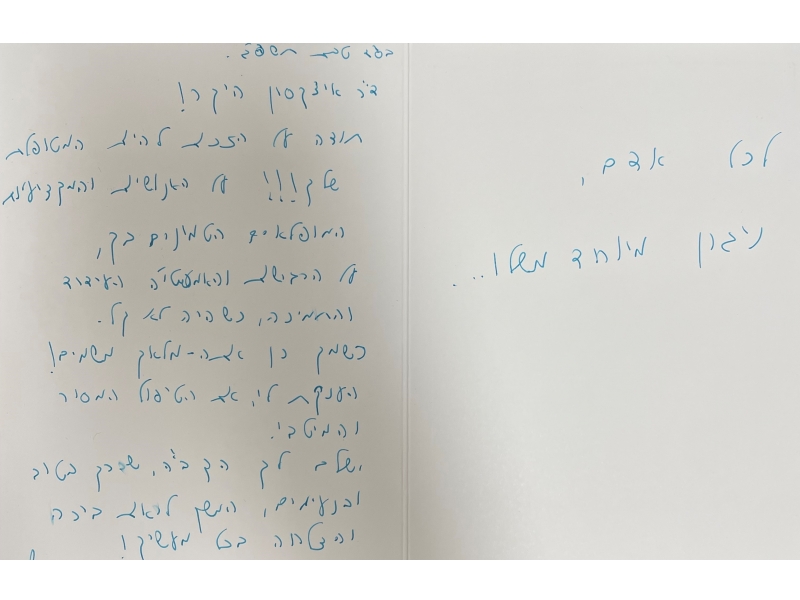 לכל אדם,
ניגון מיוחד משלו...
בס״ד טבת תשפ״ב.
ד״ר איצקסון היקר!
תודה על הזכות להיות המטופלת
שלך!!! על האנושיות והמקצועיות
המופלאים הטמונים בך,
על הרגישות והאמפטיה העידוד
והתמיכה, כשהיה לא קל.
כשמך כן אתה-מלאך משמים!
הענקת לי, את הטיפול המסור
והמיטבי.
ישלם לך הקב״ה, שכרך בטוב
ובנעימים, המשך לראות ברכה
והצלחה בכל מעשיך!